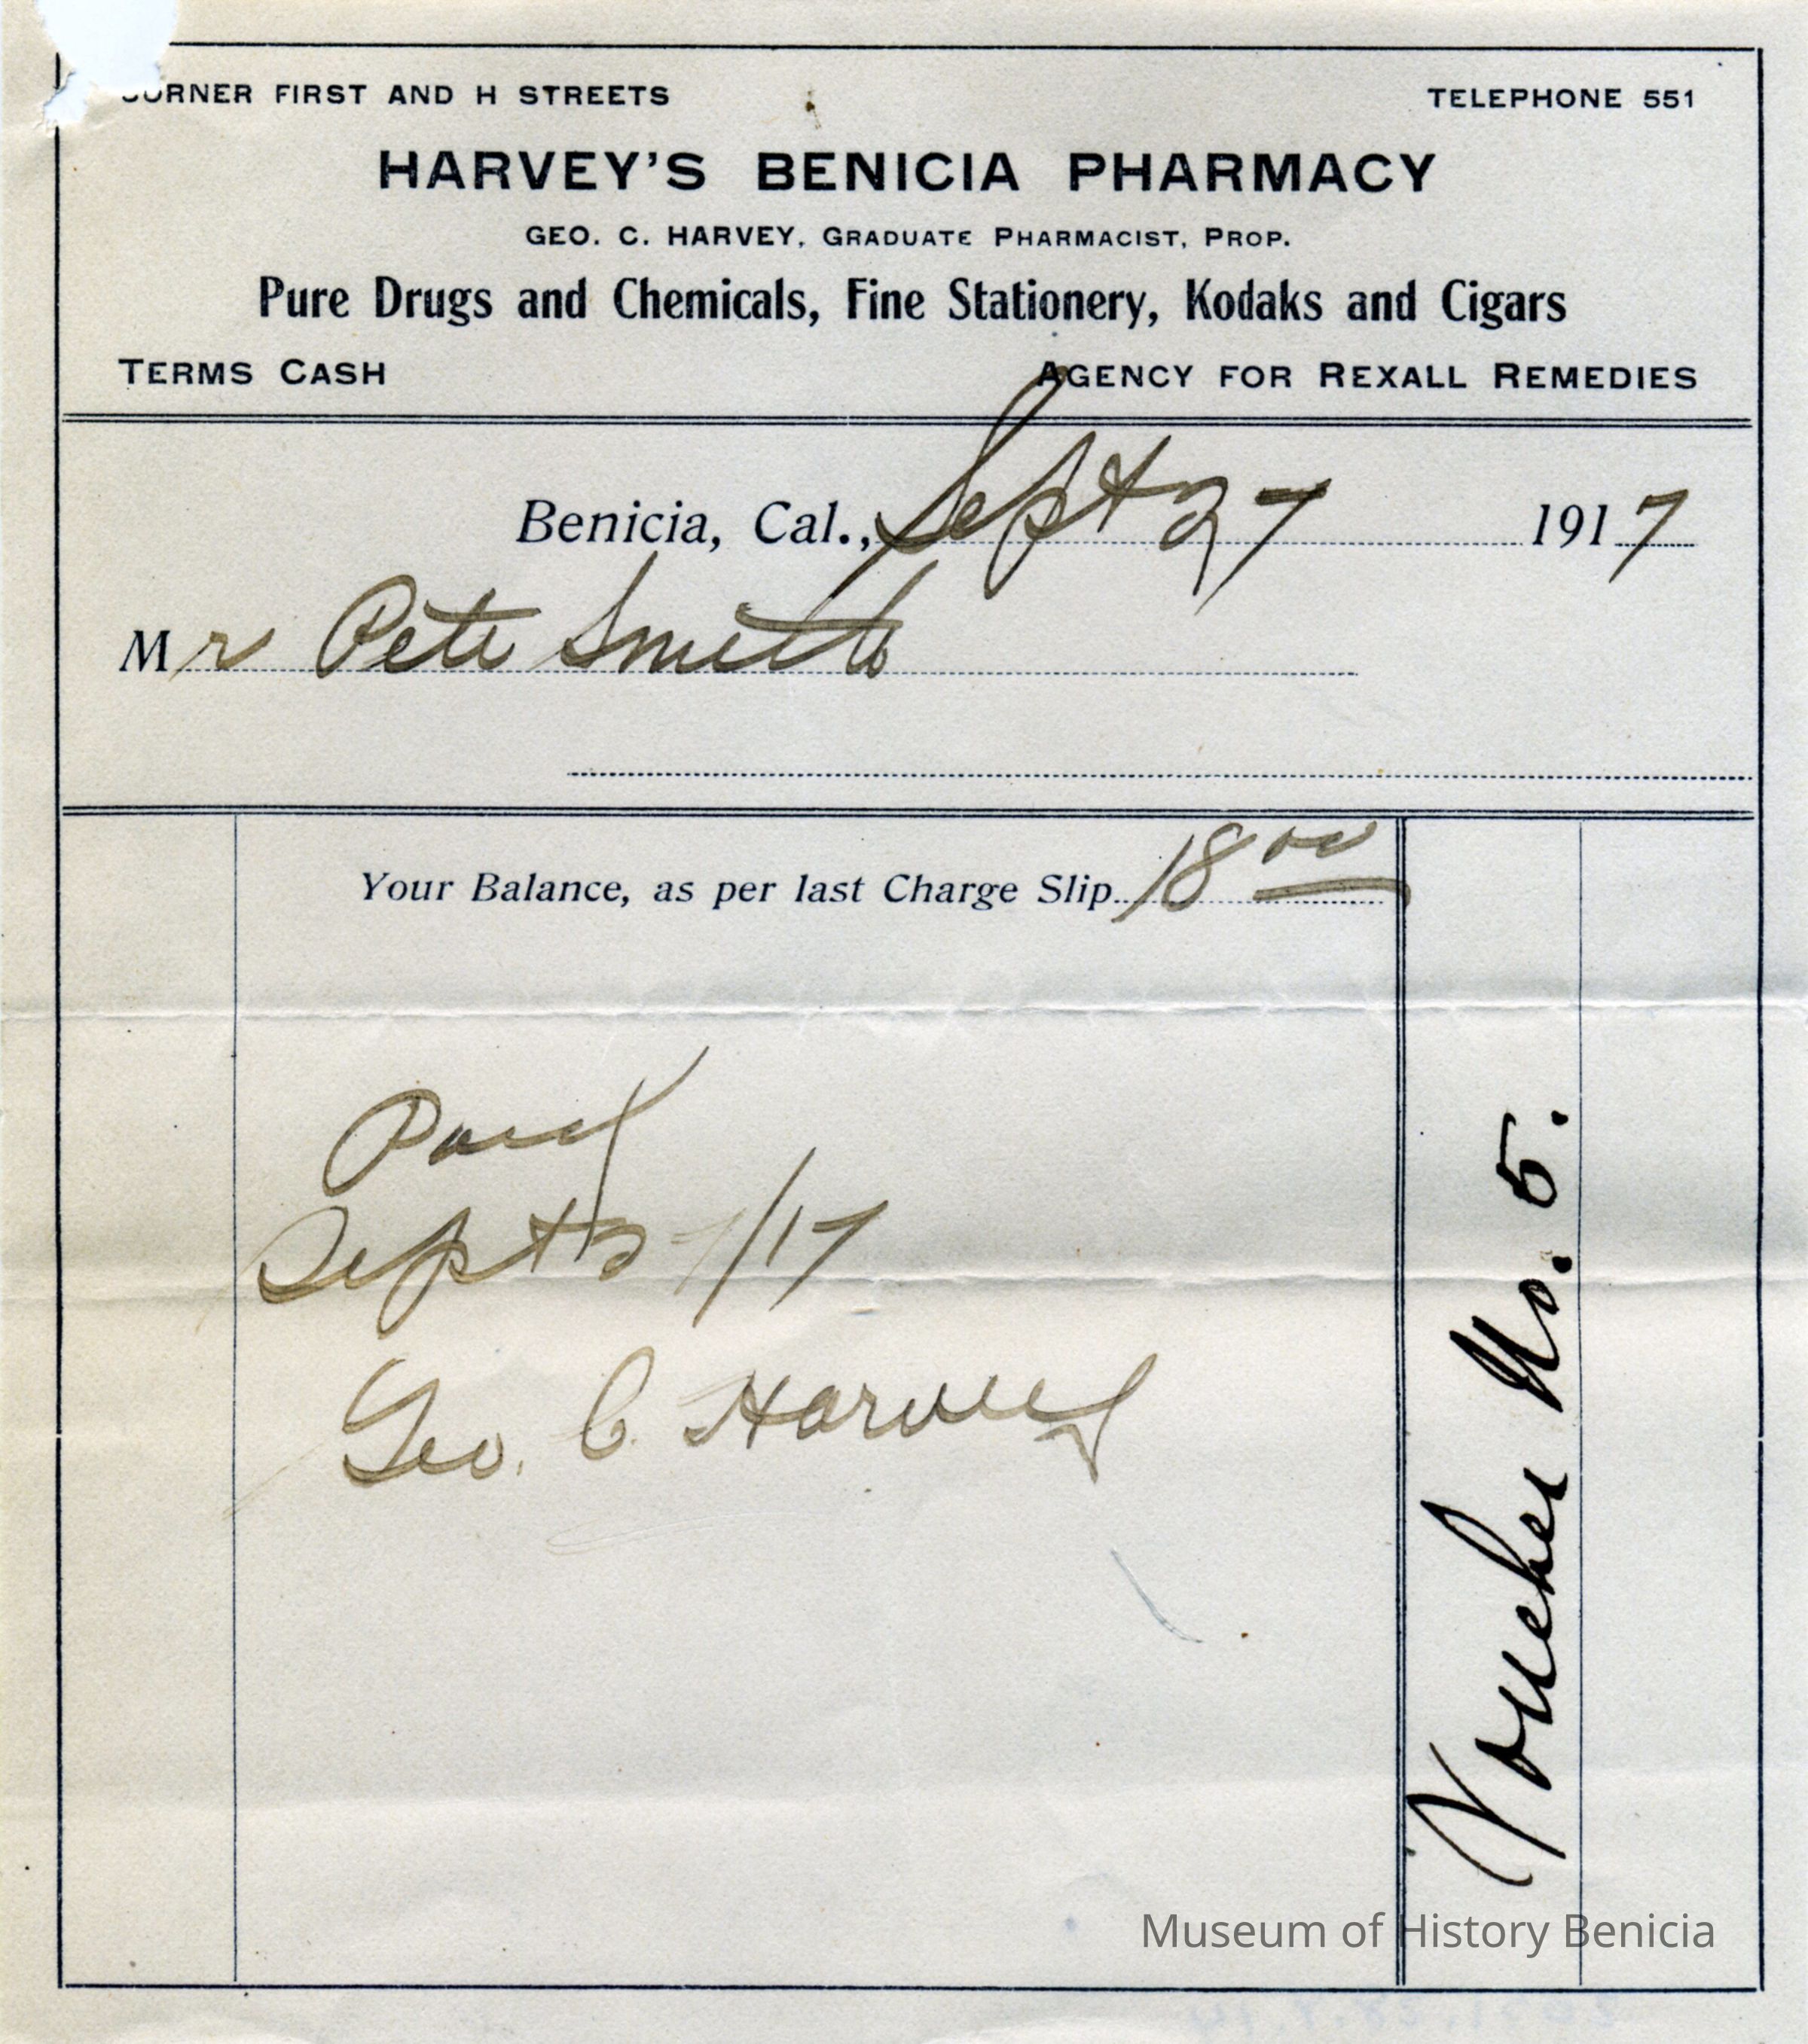 CORNER FIRST AND H STREETS TELEPHONE 551
HARVEY'S BENICIA PHARMACY
GEO. C. HARVEY, GRADUATE PHARMACIST, PROP.
Pure Drugs and Chemicals, Fine Stationery, Kodaks and Cigars
TERMS CASH AGENCY FOR REXALL REMEDIES
Benicia, Cal., Sept 27 1917
Mr Pete Smith
Your Balance, as per last Charge Slip 18 00
Paid
Sept 27/17
Geo. C. Harvey
Voucher No. 5.
Museum of History Benicia